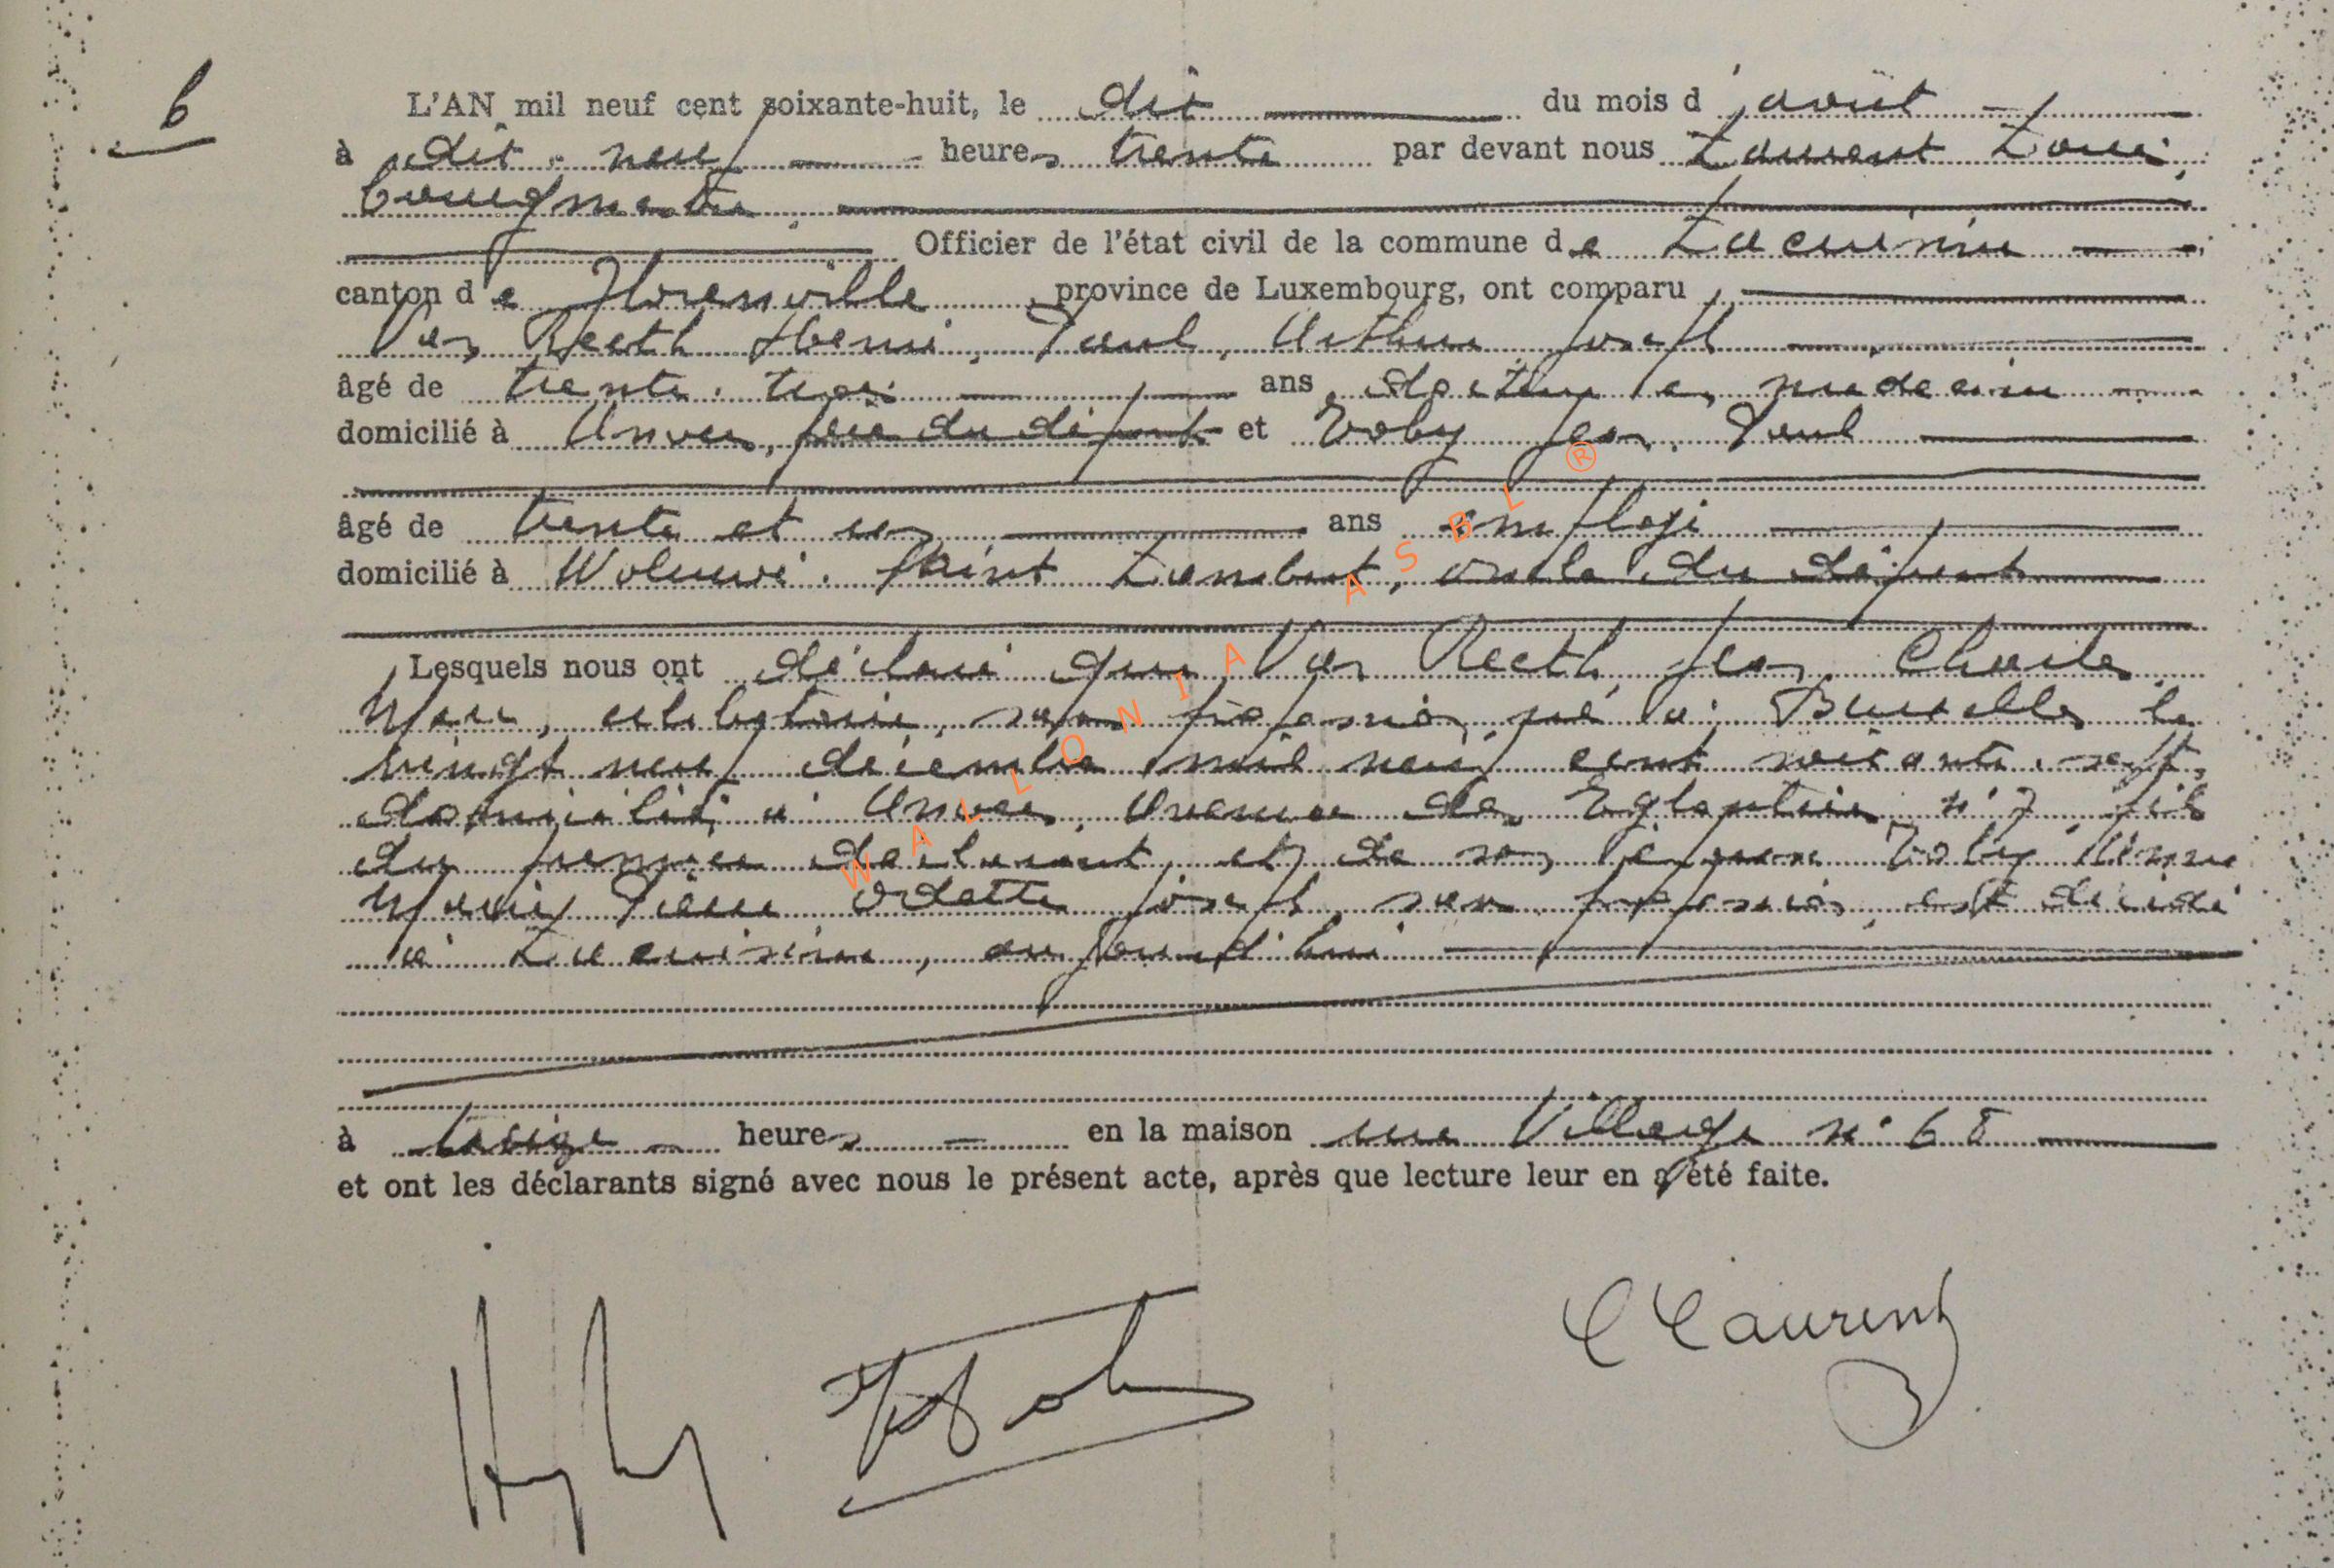 6
L'AN mil neuf cent soixante-huit, le dix du mois d'août
à dix-neuf heures trente par devant nous Laurent Louis
bourgmestre
Officier de l'état civil de la commune de Lacuisine
canton de Florenville, province de Luxembourg, ont comparu
Van Reeth Henri, Paul, Arthur Joseph
âgé de trente-trois ans, docteur en médecine
domicilié à Anvers, père du défunt et Toby Jean-Paul
âgé de trente et un ans employé
domicilié à Woluwé-Saint Lambert, oncle du défunt
Lesquels nous ont déclaré que Van Reeth, Jean Charles
Marc, célibataire, sans profession, né à Bruxelles le
vingt neuf décembre mil neuf cent soixante-sept,
domicilié à Anvers, Avenue des Eglantiers n° 7, fils
du premier déclarant et de son épouse Toby Anne
Marie Pierre Odette Joseph, sans profession, est décédé
à Lacuisine, aujourd'hui
à treize heures en la maison rue Village n° 68
et ont les déclarants signé avec nous le présent acte, après que lecture leur en a été faite.
L Laurent
WALLONIA ASBL ®